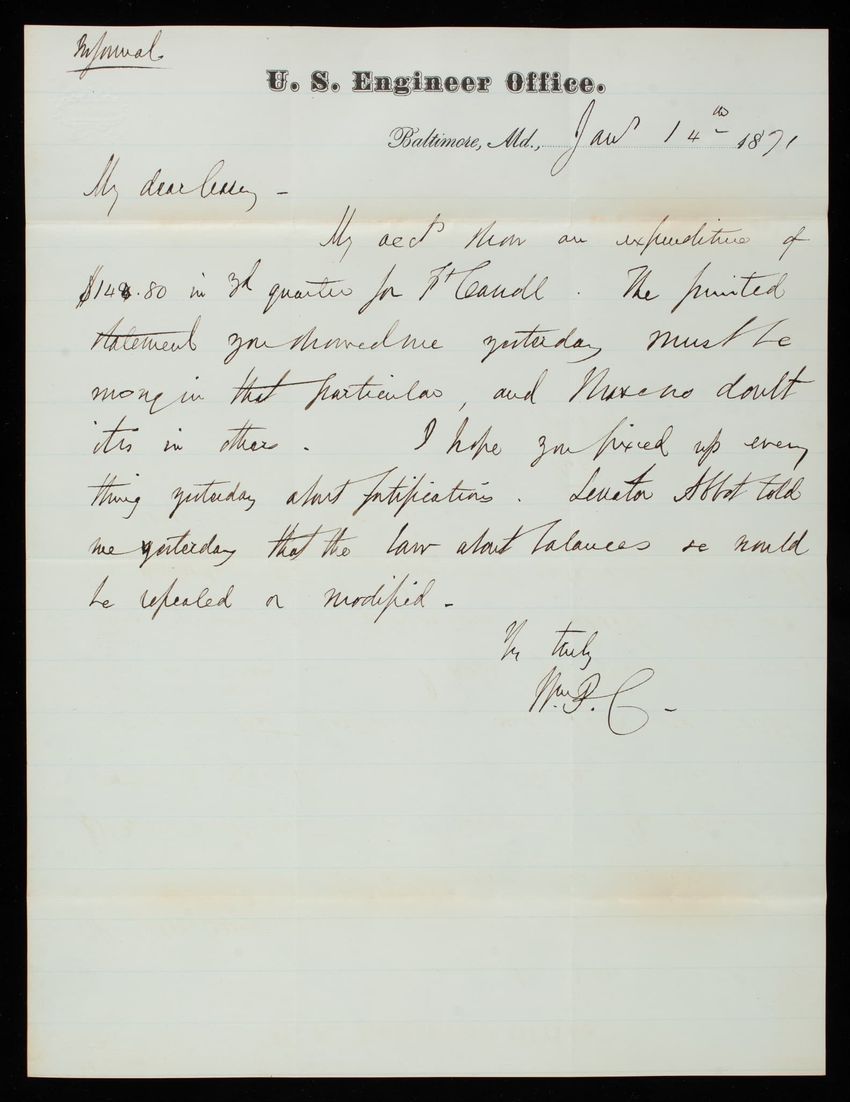 Informal
U. S. Engineer Office.
Baltimore, Md., Jany 14th 1871
My dear Casey –
My acct show an expenditure of
.80 in 3d quarter for Ft Carroll. The printed
statement you showed me yesterday must be
wrong in that particular, and no doubt
it is in others. I hope you fixed up every
thing yesterday about fortifications. Senator Abbot told
me yesterday that the law about balances &c would
be repealed or modified –
Yr truly
Wm. P. C. –